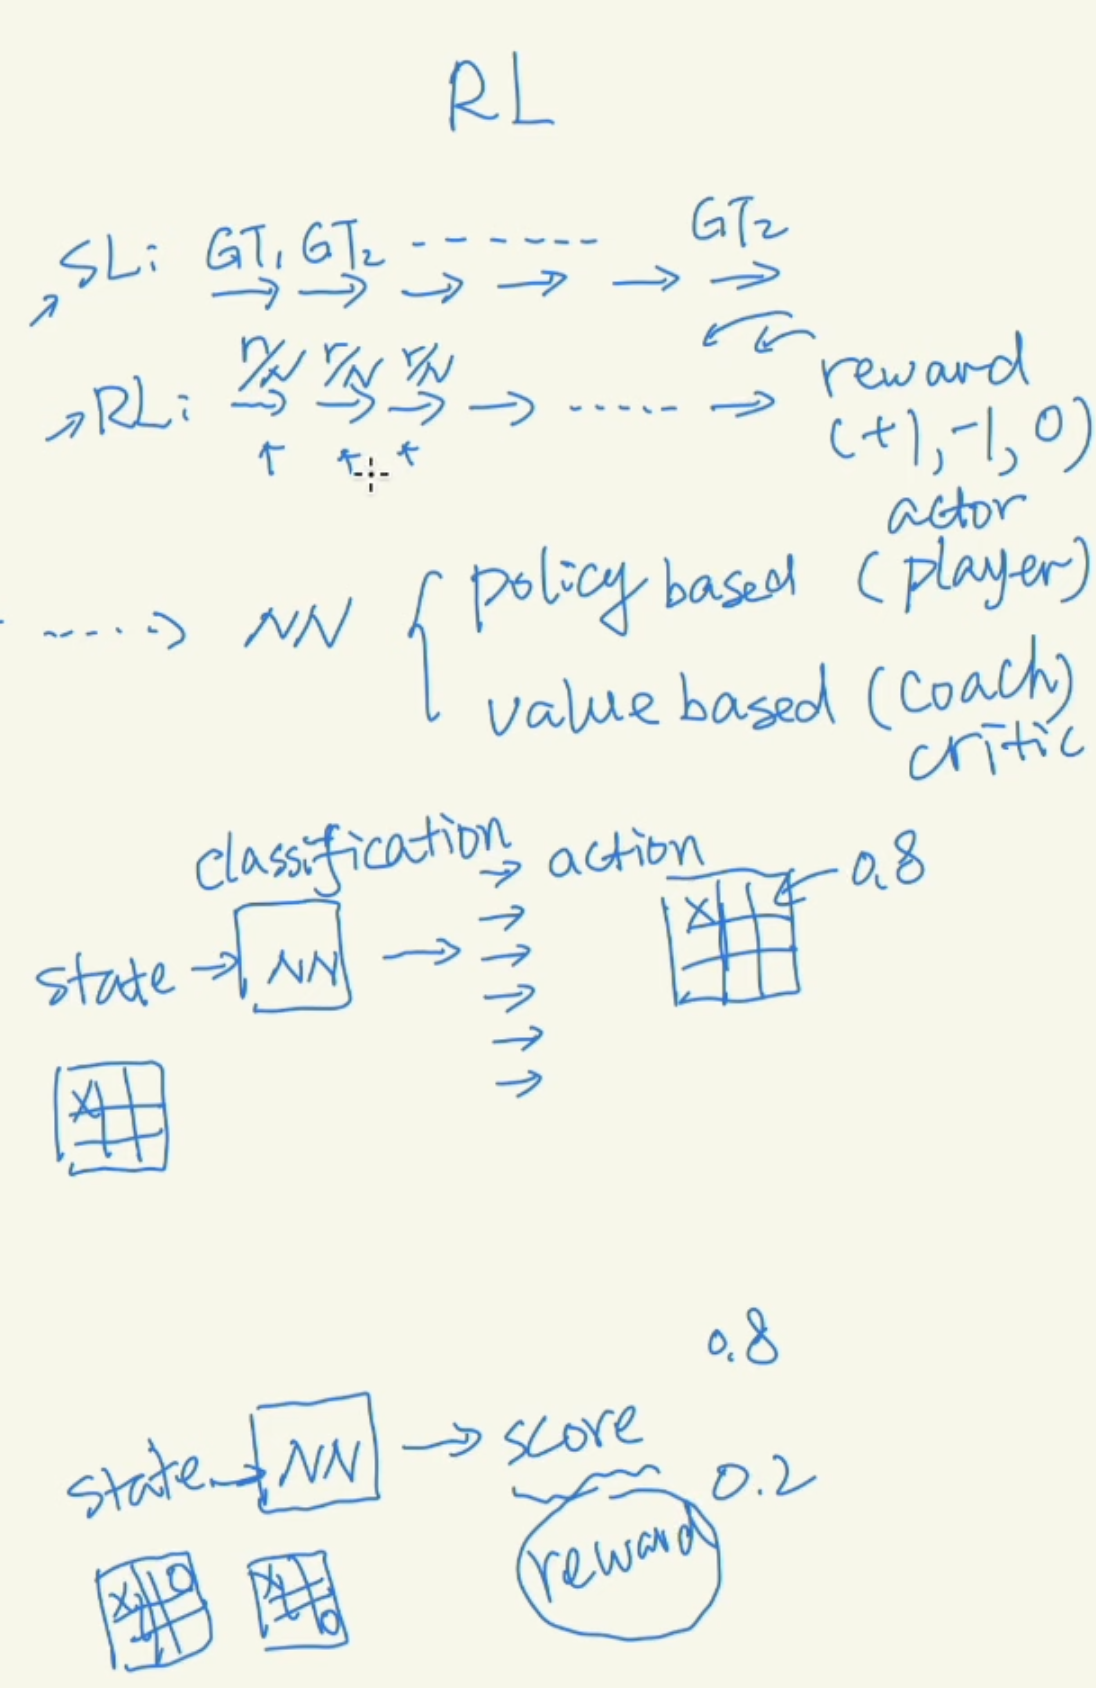 RL
SL: GT1 GT2 ------- GT2
r/N r/N r/N
RL: reward
(+1, -1, 0)
actor
NN policy based (player)
value based (coach)
critic
classification action 0.8
X
state NN
X
0.8
state NN score
0.2
reward
X O X
O